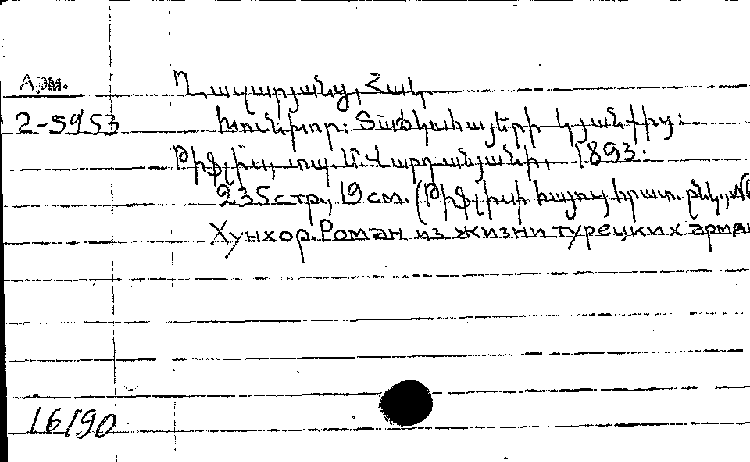 Арм. Ղազարյանց, Հակ.
2-5953 Խունխոր: Տաճկահայերի կյանքից:
Թիֆլիս, տպ. Մ. Վարդանյանի, 1893:
235 стр., 19 см. (Թիֆլիսի հայոց հրատ. ընկ., №
Хунхор. Роман из жизни турецких армян
16190